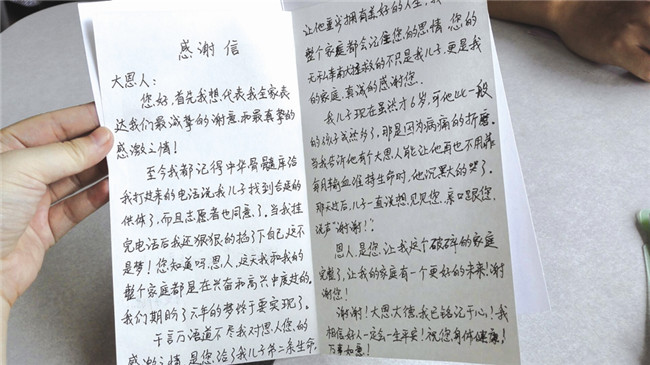 感谢信
大恩人：
您好，首先我想，代表我全家表
达我们最诚挚的谢意和最真挚的
感激之情！
至今我都记得中华骨髓库给
我打过来的电话说我儿子找到合适的
供体了，而且志愿者也同意了。当我挂
完电话后我还狠狠的掐了下自己，这不
是梦！您知道吗，恩人，这天我和我的
整个家庭都是在兴奋和高兴中度过的。
我们期盼了六年的梦终于要实现了。
千言万语道不尽我对恩人您的
感激之情，是您，给了我儿子第二条生命，
让他至少拥有美好的人生，我
整个家庭都会记住您的恩情，您的
无私奉献拯救的不只是我儿子，更是我
的家庭，真诚的感谢您。
我儿子现在虽然才6岁，可他比一般
的孩子成熟多了。那是因为病痛的折磨。
当我告诉他有个大恩人能让他再也不用靠
每月输血维持生命时，他沉默的哭了。
那天过后，儿子一直说想见见您，亲口跟您
说声"谢谢！"。
恩人，是您，让我这个破碎的家庭
完整了，让我的家庭有一个更好的未来！谢
谢您！
谢谢！大恩大德，我已铭记于心！我
相信好人一定会一生平安！祝您，身体健康！
万事如意！